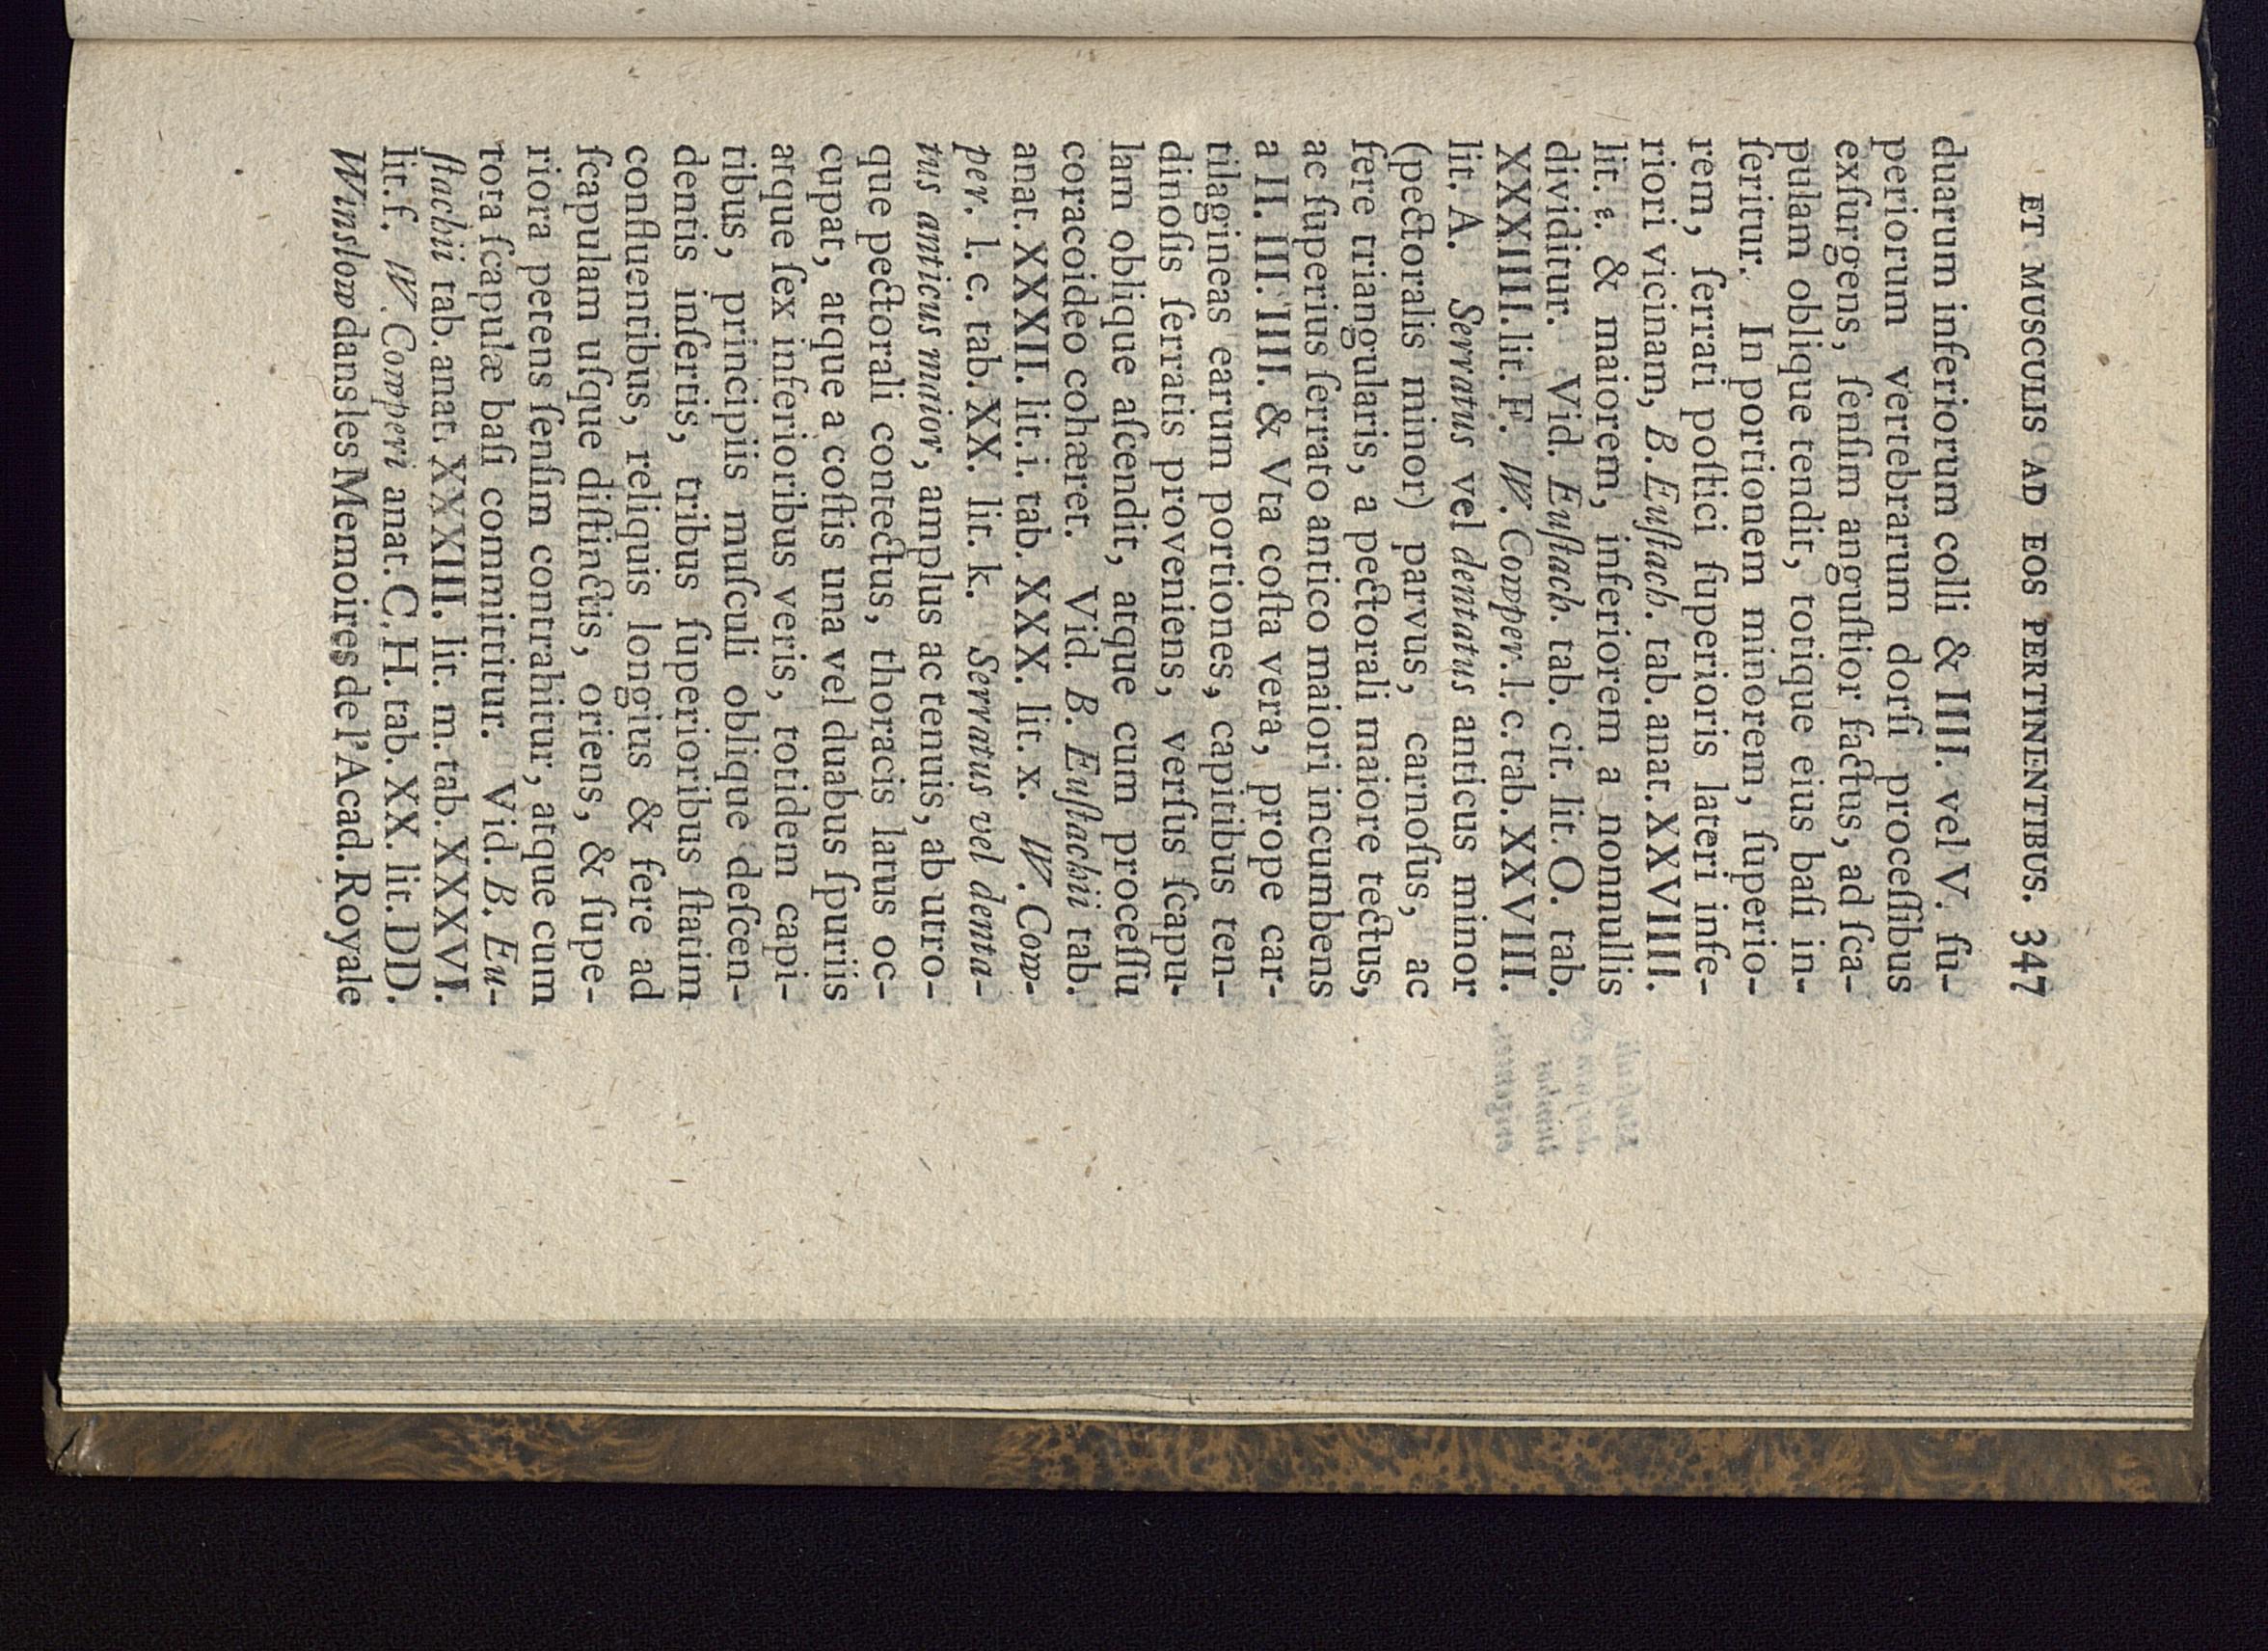 ET MUSCULIS AD EOS PERTINENTIBUS. 347
duarum inferiorum colli & IIII. vel V. ſu-
periorum vertebrarum dorſi proceſſibus
exſurgens, ſenſim anguſtior factus, ad ſca-
pulam oblique tendit, totique eius baſi in-
ſeritur. In portionem minorem, ſuperio-
rem, ſerrati poſtici ſuperioris lateri infe-
riori vicinam, B. Euſtach. tab. anat. XXVIIII.
lit. ε. & maiorem, inferiorem a nonnullis
dividitur. Vid. Euſtach. tab. cit. lit. O. tab.
XXXIIII. lit. F. W. Cowper. l. c. tab. XXVIII.
lit. A. Serratus vel dentatus anticus minor
(pectoralis minor) parvus, carnoſus, ac
fere triangularis, a pectorali maiore tectus,
ac ſuperius ſerrato antico maiori incumbens
a II. III. IIII. & Vta coſta vera, prope car-
tilagineas earum portiones, capitibus ten-
dinoſis ſerratis proveniens, verſus ſcapu-
lam oblique aſcendit, atque cum proceſſu
coracoideo cohæret. Vid. B. Euſtachii tab.
anat. XXXII. lit. i. tab. XXX. lit. x. W. Cow-
per. l. c. tab. XX. lit. k. Serratus vel denta-
tus anticus maior, amplus ac tenuis, ab utro-
que pectorali contectus, thoracis latus oc-
cupat, atque a coſtis una vel duabus ſpuriis
atque ſex inferioribus veris, totidem capi-
tibus, principiis muſculi oblique deſcen-
dentis inſertis, tribus ſuperioribus ſtatim
confluentibus, reliquis longius & fere ad
ſcapulam uſque diſtinctis, oriens, & ſupe-
riora petens ſenſim contrahitur, atque cum
tota ſcapulæ baſi committitur. Vid. B. Eu-
ſtachii tab. anat. XXXIII. lit. m. tab. XXXVI.
lit. f. W. Cowperi anat. C. H. tab. XX. lit. DD.
Winslow dans les Memoires de l'Acad. Royale